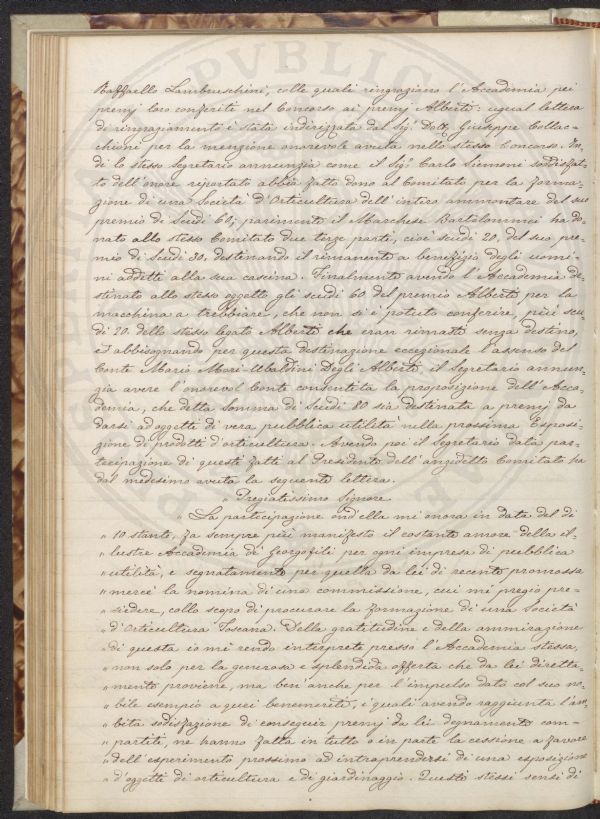 Raffaello Lambruschini, colle quali ringraziano l'Accademia pei
premj loro conferiti nel Concorso ai premj Alberti: ugual lettera
di ringraziamento è stata indirizzata dal Sigr. Dott. Giuseppe Collac-
chioni per la menzione onorevole avuta nello stesso Concorso. In-
di lo stesso Segretario annunzia come il Sigr. Carlo Siemoni soddisfat-
to dell'onore riportato abbia fatto dono al Comitato per la forma-
zione di una Società d'Orticultura dell'intero ammontare del suo
premio di Scudi 60; parimente il Marchese Bartolommei ha do-
nato allo stesso Comitato due terze parti, cioè scudi 20. del suo pre-
mio di Scudi 30. destinando il rimanente a benefizio degli uomi-
ni addetti alla sua cascina. Finalmente avendo l'Accademia de-
stinato allo stesso oggetto gli scudi 60 del premio Alberti per la
macchina a trebbiare, che non si è potuto conferire, più scu-
di 20. dello stesso legato Alberti che eran rimasti senza destino,
ed abbisognando per questa destinazione eccezionale l'assenso del
Conte Mario Mori Ubaldini Degli Alberti, il Segretario annun-
zia avere l'onorevol Conte consentita la proposizione dell'Acca-
demia, che detta somma di Scudi 80 sia destinata a premj da
darsi ad oggetti di vera pubblica utilità nella prossima Esposi-
zione di prodotti d'orticultura. Avendo poi il Segretario data par-
tecipazione di questi fatti al Presidente dell'anzidetto Comitato ha
dal medesimo avuta la seguente lettera.
" Pregiatissimo Signore.
" La partecipazione ond'ella mi onora in data del dì
" 10 stante, fa sempre più manifesto il costante amore della il-
" lustre Accademia de' Georgofili per ogni impresa di pubblica
" utilità, e segnatamente per quella da lei di recente promossa
" mercè la nomina di una commissione, cui mi pregio pre-
" siedere, collo scopo di procurare la formazione di una Società
" d'Orticultura Toscana. Della gratitudine e della ammirazione
" di questa io mi rendo interprete presso l'Accademia stessa,
" non solo per la generosa e splendida offerta che da lei diretta-
" mente proviene, ma ben'anche per l'impulso dato col suo no-
" bile esempio a quei benemeriti, i quali avendo raggiunta l'am-
" bita sodisfazione di conseguir premj da lei degnamente com-
" partiti, ne hanno fatta in tutto o in parte la cessione a favore
" dell'esperimento prossimo ad intraprendersi di una esposizione
" d'oggetti di orticultura e di giardinaggio. Questi stessi sensi di